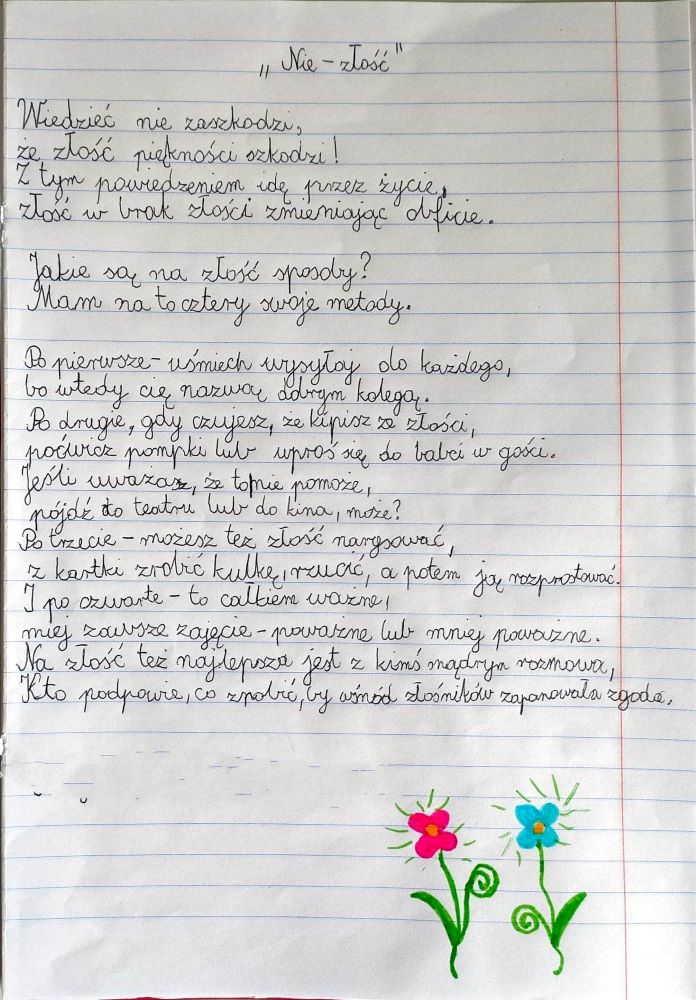 „Nie – złość"
Wiedzieć nie zaszkodzi,
że złość piękności szkodzi!
Z tym powiedzeniem idę przez życie,
złość w brak złości zmieniając obficie.
Jakie są na złość sposoby?
Mam na to cztery swoje metody.
Po pierwsze – uśmiech wysyłaj do każdego,
bo wtedy cię nazwą dobrym kolegą.
Po drugie, gdy czujesz, że kipisz ze złości,
poćwicz pompki lub uproś się do babci w gości.
Jeśli uważasz, że to nie pomoże,
pójdź do teatru lub do kina, może?
Po trzecie – możesz też złość narysować,
z kartki zrobić kulkę, rzucić, a potem ją rozprostować.
I po czwarte – to całkiem ważne,
miej zawsze zajęcie – poważne lub mniej poważne.
Na złość też najlepsza jest z kimś mądrym rozmowa,
Kto podpowie, co zrobić, by wśród złośników zapanowała zgoda.